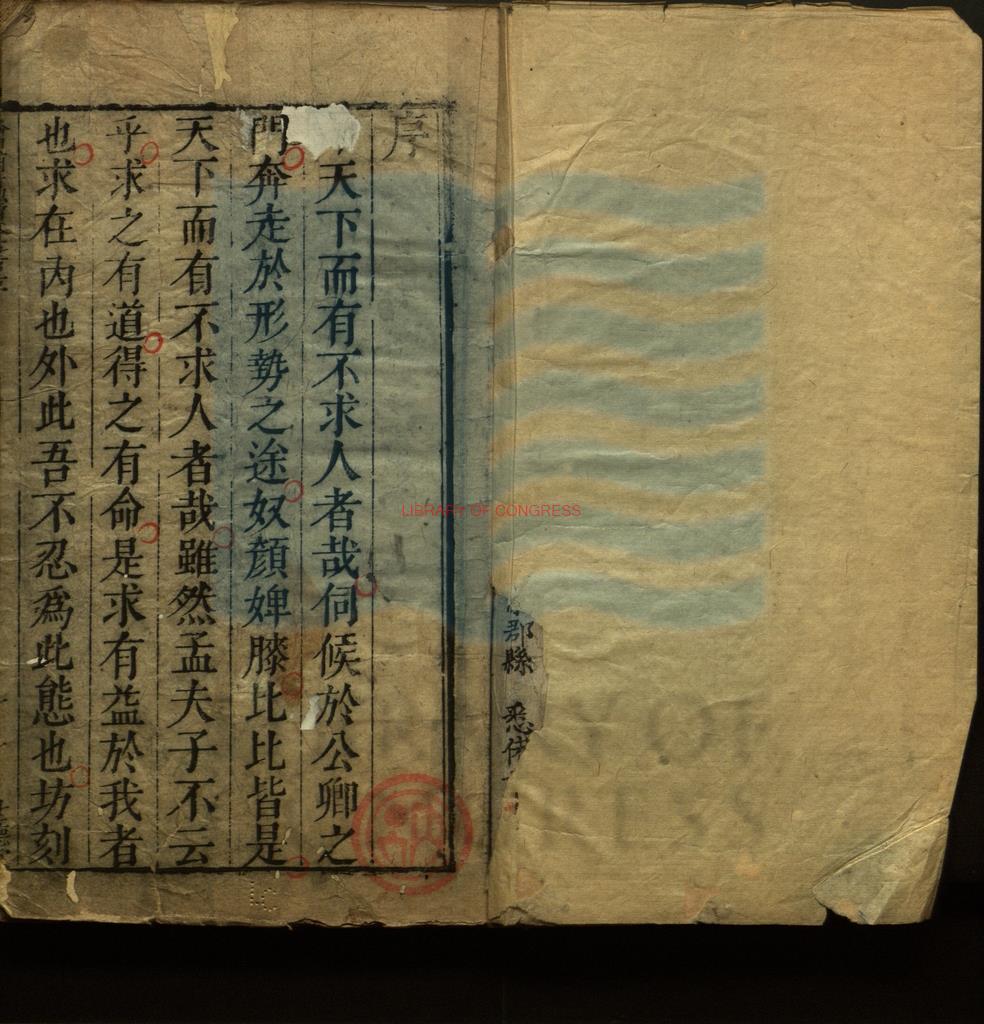 序
天下而有不求人者哉伺候於公卿之
門奔走於形勢之途奴顏婢膝比比皆是
天下而有不求人者哉雖然孟夫子不云
乎求之有道得之有命是求有益於我者
也求在內也外此吾不忍為此態也坊刻
郡縣 悉
LIBRARY OF CONGRESS